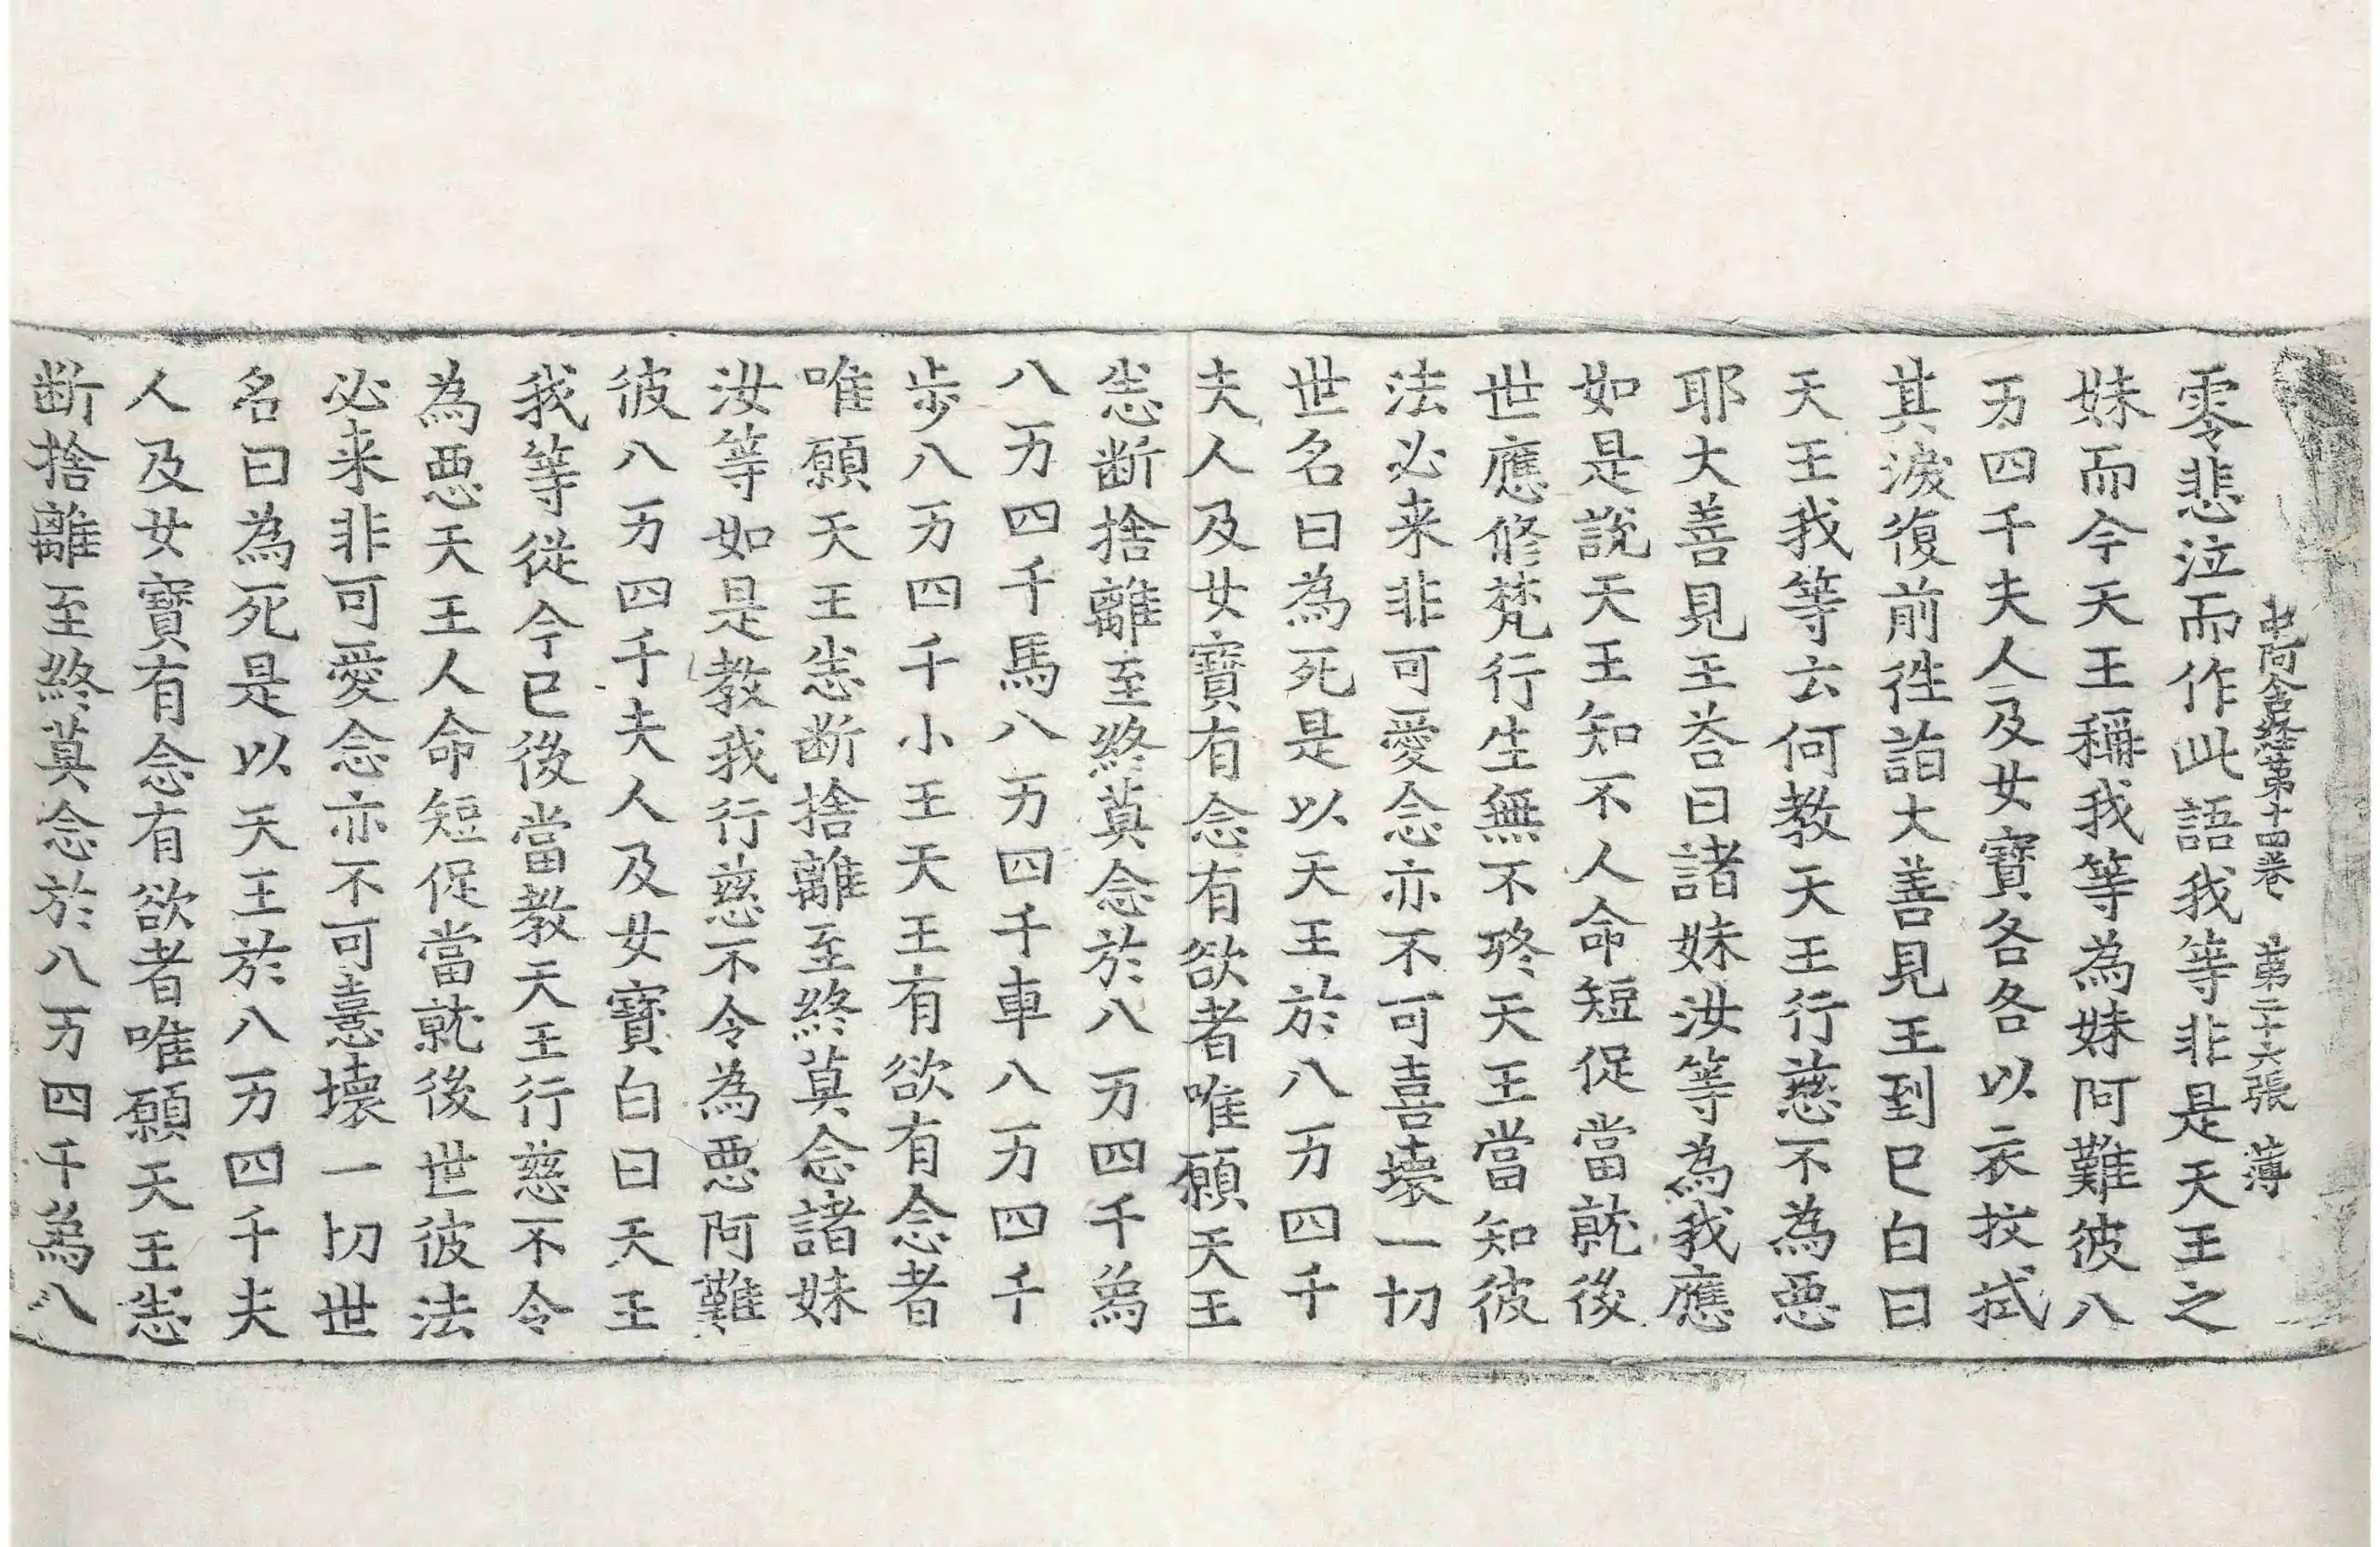 中阿含經第十四卷 第二十六張 薄
零悲泣而作此語我等非是天王之
妹而今天王稱我等為妹阿難彼八
万四千夫人及女寶各各以衣抆拭
其淚復前往詣大善見王到已白曰
天王我等云何教天王行慈不為惡
耶大善見王荅曰諸妹汝等為我應
如是說天王知不人命短促當就後
世應修梵行生無不終天王當知彼
法必来非可愛念亦不可喜壞一切
世名曰為死是以天王於八万四千
夫人及女寶有念有欲者唯願天王
悉断捨離至終莫念於八万四千為
八万四千馬八万四千車八万四千
步八万四千小王天王有欲有念者
唯願天王悉断捨離至終莫念諸妹
汝等如是教我行慈不令為惡阿難
彼八万四千夫人及女寶白曰天王
我等從今已後當教天王行慈不令
為惡天王人命短促當就後世彼法
必来非可愛念亦不可憙壞一切世
名曰為死是以天王於八万四千夫
人及女寶有念有欲者唯願天王悉
断捨離至終莫念於八万四千為八